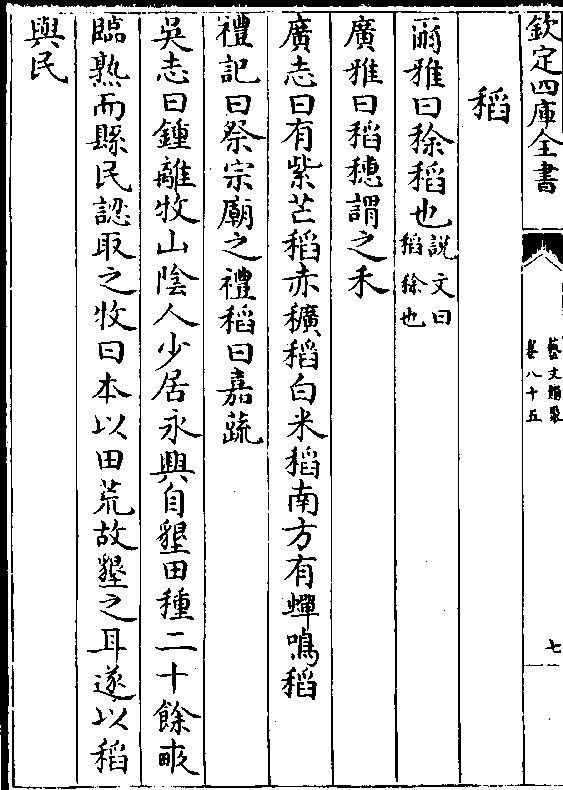 欽定四庫全書
藝文類聚
卷八十五
七
稻
爾雅曰稌稻也說文曰稻稌也
廣雅曰稻穗謂之禾
廣志曰有紫芒稻赤穬稻白米稻南方有蟬鳴稻
禮記曰祭宗廟之禮稻曰嘉蔬
吳志曰鍾離牧山陰人少居永興自墾田種二十餘畝
臨熟而縣民認取之牧曰本以田荒故墾之耳遂以稻
與民